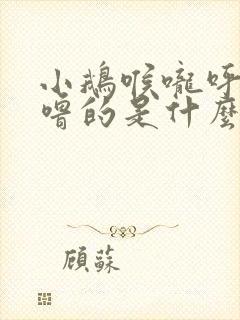 小鵝喉嚨呼
嚕的是什麼
顧蘇